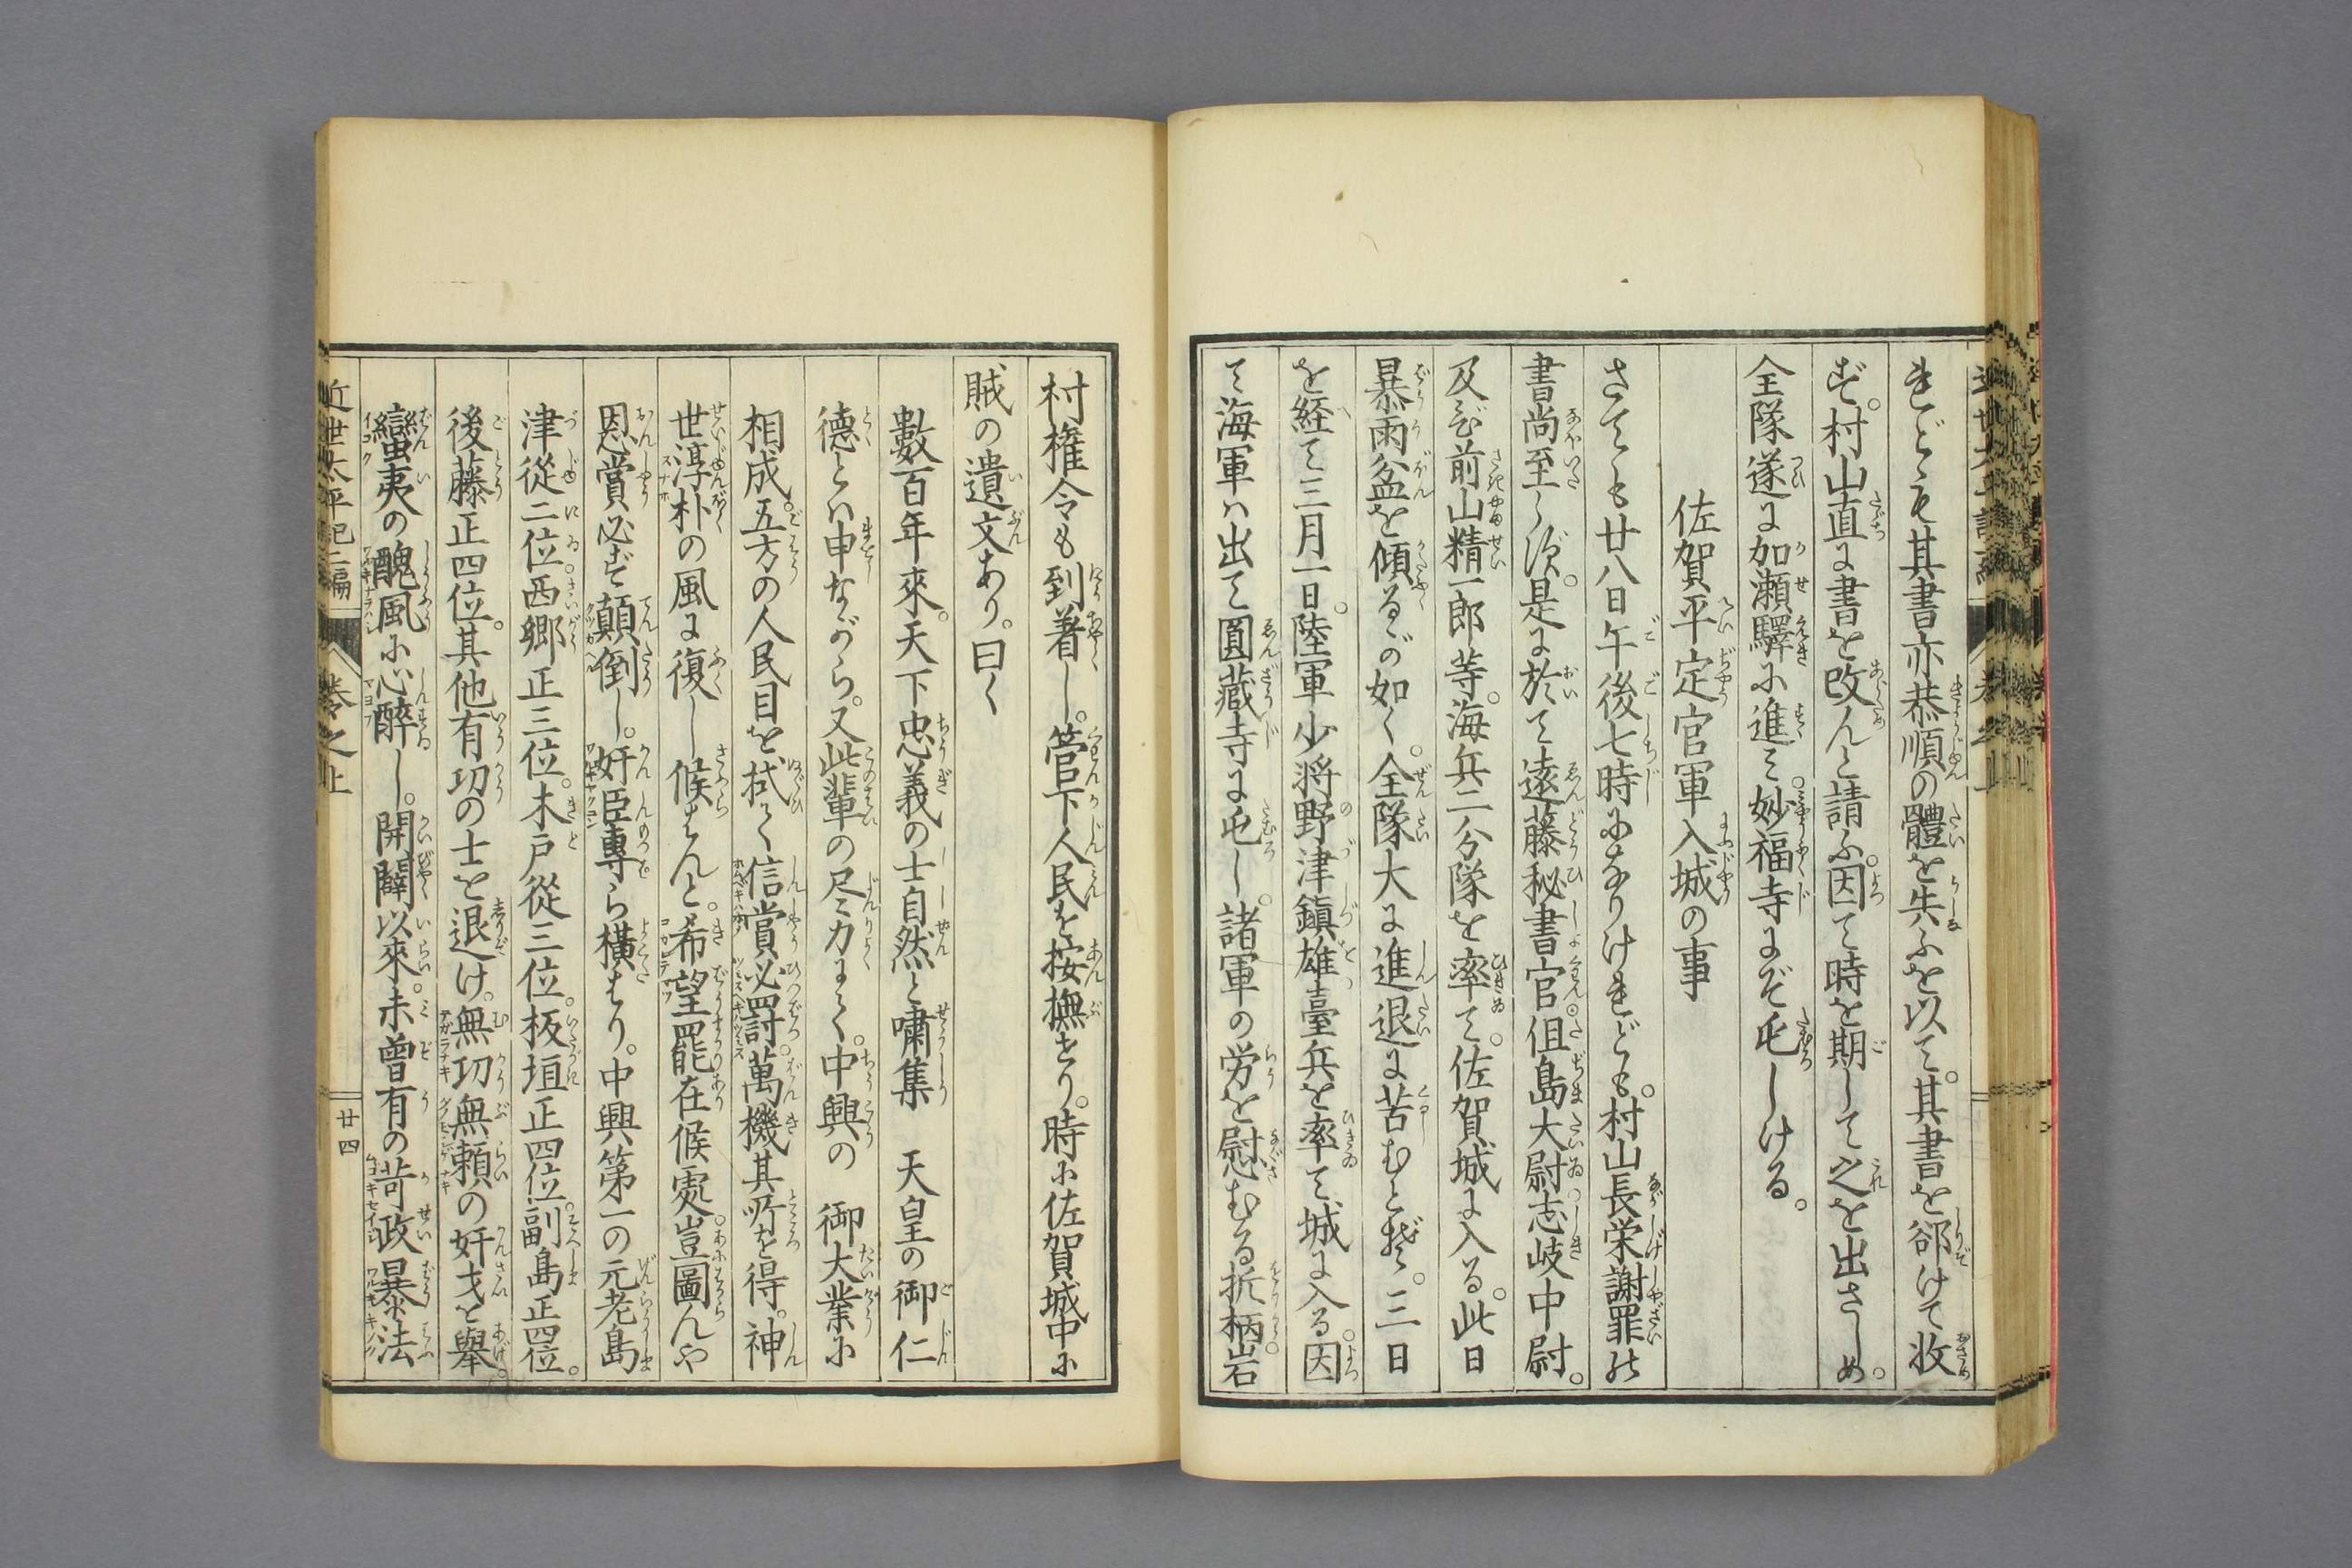 れども其書亦恭順の體を失ふを以て。其書を郤けて收
ず。村山直に書を改んと請ふ。因て時を期して之を出さしめ。
全隊遂に加瀬驛に進み。妙福寺にぞ屯しける。
佐賀平定官軍入城の事
さても廿八日午後七時になりけれども。村山長栄謝罪の
書尚至らず。是に於て遠藤秘書官。但島大尉。志岐中尉。
及び前山精一郎等。海兵二分隊を率て。佐賀城に入る。此日
暴雨盆を傾るが如く。全隊大に進退に苦むと雖。三日
を経て三月一日。陸軍少将野津鎮雄臺兵を率て城に入る。因
て海軍は出て圓藏寺に屯し。諸軍の労を慰むる折柄。岩
村権令も到着し。管下人民を按撫せり。時に佐賀城中に
賊の遺文あり。曰く
數百年來。天下忠義の士自然と嘯集 天皇の御仁
德とは申ながら。又此輩の尽力にて。中興の 御大業に
相成。五方の人民目を拭て信賞必罰。萬機其所を得。神
世淳朴の風に復し候はんと。希望罷在候處。豈圖んや
恩賞必ず顛倒し。奸臣專ら横はり。中興第一の元老島
津從二位。西郷正三位。木戸從三位。板垣正四位。副島正四位。
後藤正四位。其他有功の士を退け。無功無頼の奸才を舉げ。
蠻夷の醜風に心醉し。開闢以來。未曾有の苛政暴法
近世太平記二編 卷之上 廿四